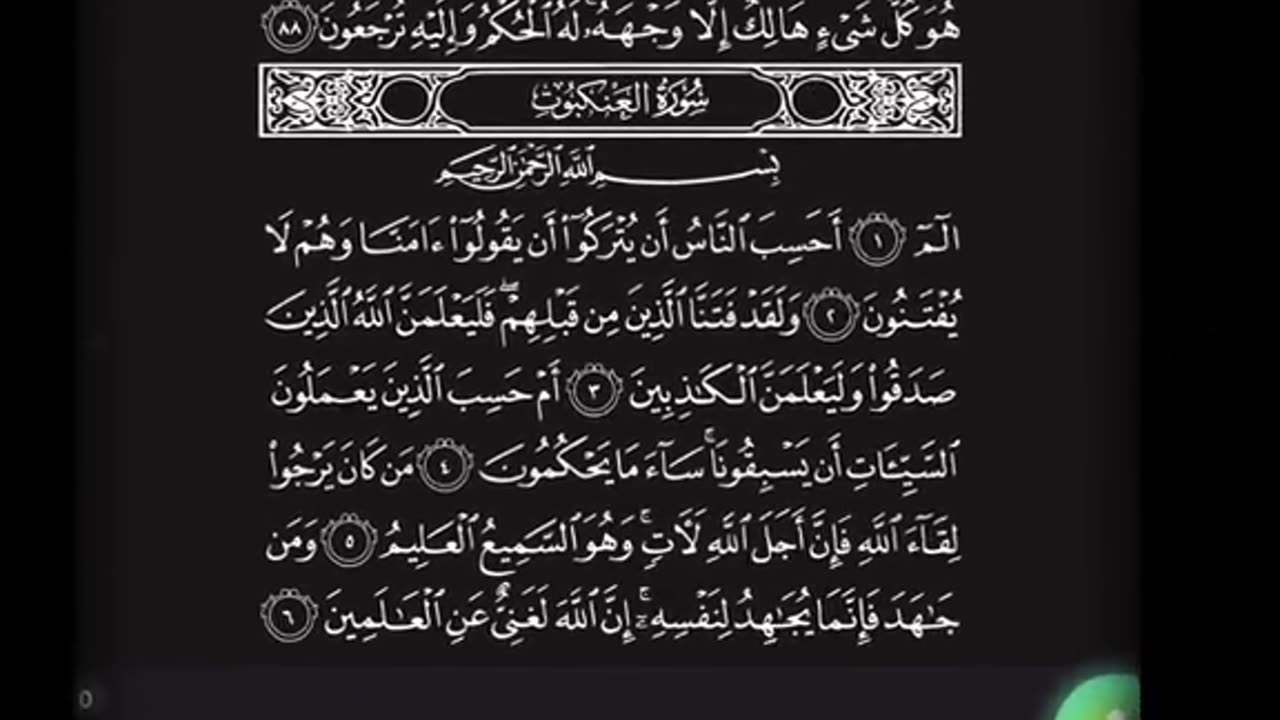 هُوَ كُلُّ شَىْءٍ هَالِكٌ إِلَّا وَجْهَهُۥ لَهُ ٱلْحُكْمُ وَإِلَيْهِ تُرْجَعُونَ ٨٨
سُورَةُ العَنكَبُوتِ
بِسْمِ ٱللَّهِ ٱلرَّحْمَٰنِ ٱلرَّحِيمِ
الٓمٓ ١ أَحَسِبَ ٱلنَّاسُ أَن يُتْرَكُوٓا۟ أَن يَقُولُوٓا۟ ءَامَنَّا وَهُمْ لَا
يُفْتَنُونَ ٢ وَلَقَدْ فَتَنَّا ٱلَّذِينَ مِن قَبْلِهِمْ ۖ فَلَيَعْلَمَنَّ ٱللَّهُ ٱلَّذِينَ
صَدَقُوا۟ وَلَيَعْلَمَنَّ ٱلْكَٰذِبِينَ ٣ أَمْ حَسِبَ ٱلَّذِينَ يَعْمَلُونَ
ٱلسَّيِّـَٔاتِ أَن يَسْبِقُونَا ۚ سَآءَ مَا يَحْكُمُونَ ٤ مَن كَانَ يَرْجُوا۟
لِقَآءَ ٱللَّهِ فَإِنَّ أَجَلَ ٱللَّهِ لَءَاتٍ ۚ وَهُوَ ٱلسَّمِيعُ ٱلْعَلِيمُ ٥ وَمَن
جَٰهَدَ فَإِنَّمَا يُجَٰهِدُ لِنَفْسِهِۦٓ ۚ إِنَّ ٱللَّهَ لَغَنِىٌّ عَنِ ٱلْعَٰلَمِينَ ٦